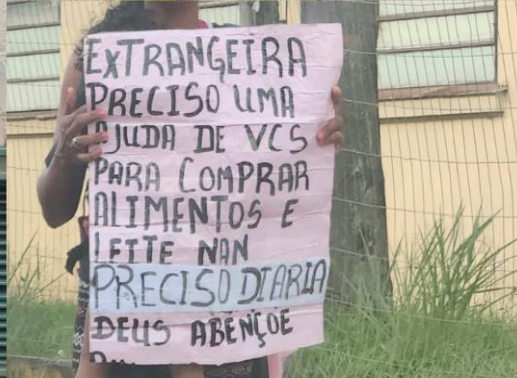 ExTRANGEIRA
PRECISO UMA
AJUDA DE VCS
PARA COMPRAR
ALIMENTOS E
LEITE NAN
PRECISO DIARIA
DEUS ABENÇOE